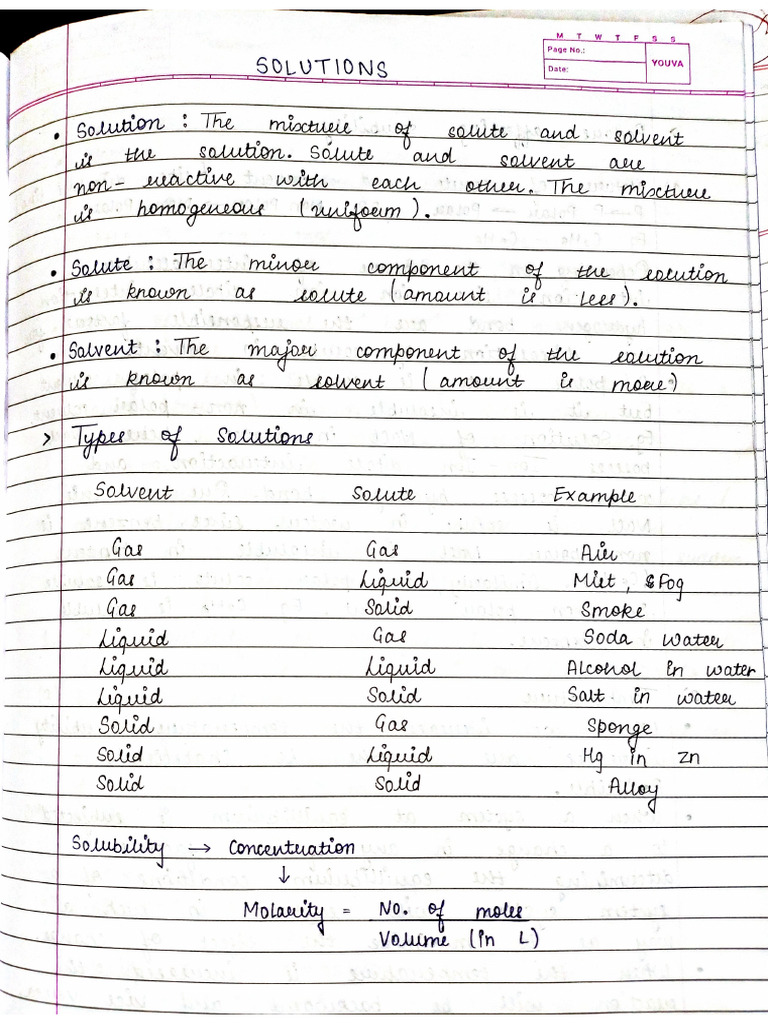 M T W T F S S
Page No.:
Date:
YOUVA
SOLUTIONS
• Solution : The mixture of solute and solvent
is the solution. Solute and solvent are
non-reactive with each other. The mixture
is homogeneous (uniform).
• Solute : The minor component of the solution
is known as solute (amount is less).
• Solvent : The major component of the solution
is known as solvent (amount is more)
> Types of solutions
Solvent Solute Example
Gas Gas Air
Gas Liquid Mist, Fog
Gas Solid Smoke
Liquid Gas Soda water
Liquid Liquid Alcohol in water
Liquid Solid Salt in water
Solid Gas Sponge
Solid Liquid Hg in Zn
Solid Solid Alloy
Solubility → Concentration
↓
Molarity = No. of moles
Volume (in L)